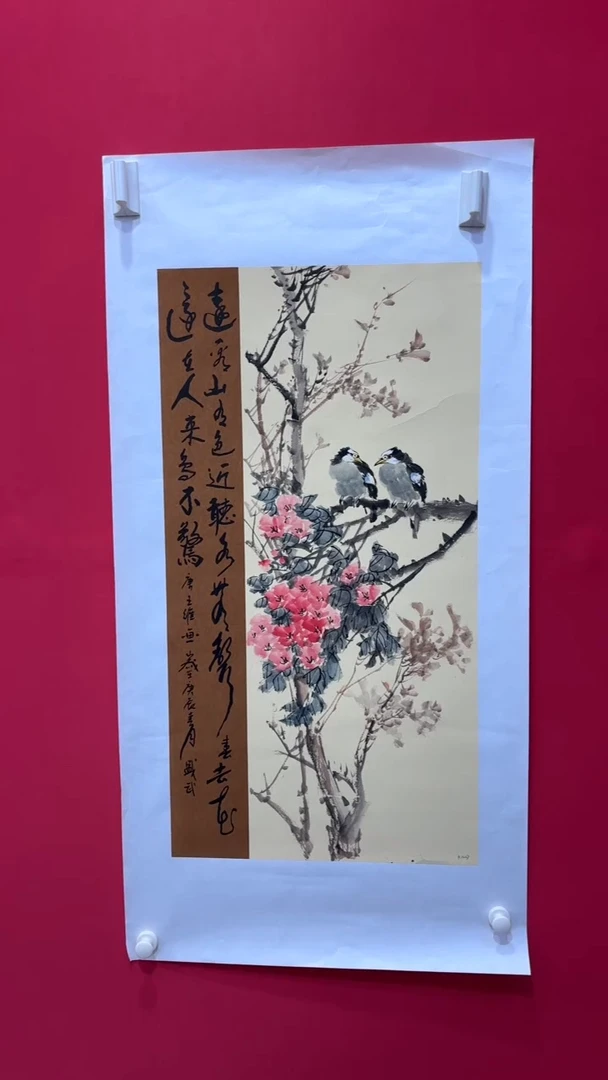 遠看山有色近聽水無聲春去花
還在人來鳥不驚 唐王維画 歲次庚辰春月